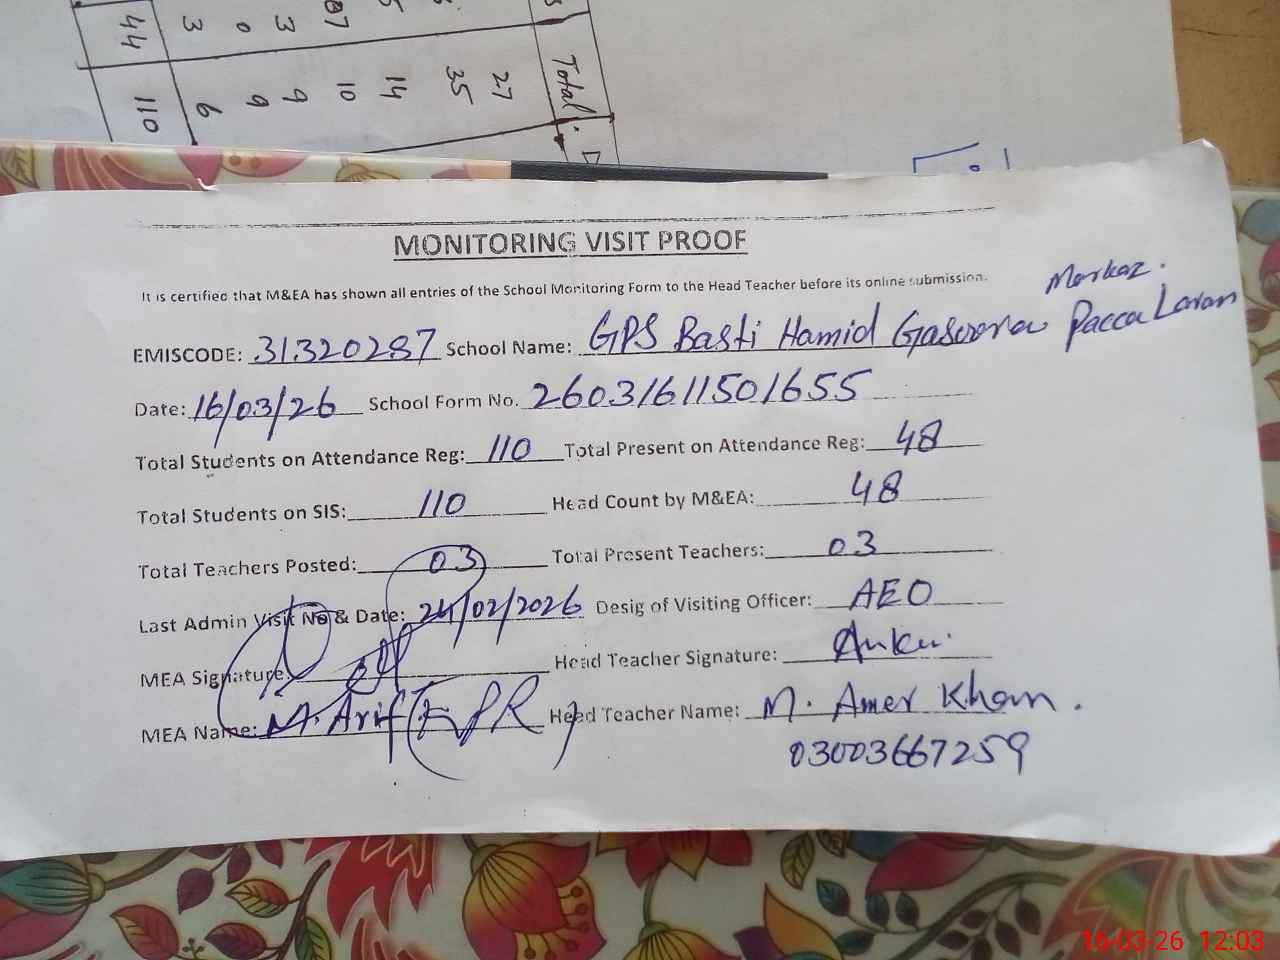 Total
27
35
14
10
9
9
6
110
3
0
3
44
MONITORING VISIT PROOF
It is certified that M&EA has shown all entries of the School Monitoring Form to the Head Teacher before its online submission.
Markaz.
EMISCODE: 31320287 School Name: GPS Basti Hamid Gasoorna Pacca Laran
Date: 16/03/26 School Form No. 26031611501655
Total Students on Attendance Reg: 110 Total Present on Attendance Reg: 48
Total Students on SIS: 110 Head Count by M&EA: 48
Total Teachers Posted: 03 Total Present Teachers: 03
Last Admin Visit No & Date: 24/02/2026 Desig of Visiting Officer: AEO
MEA Signature: Head Teacher Signature:
MEA Name: M. Arif (FPR) Head Teacher Name: M. Amer Khan.
03003667259
16-03-26 12:03